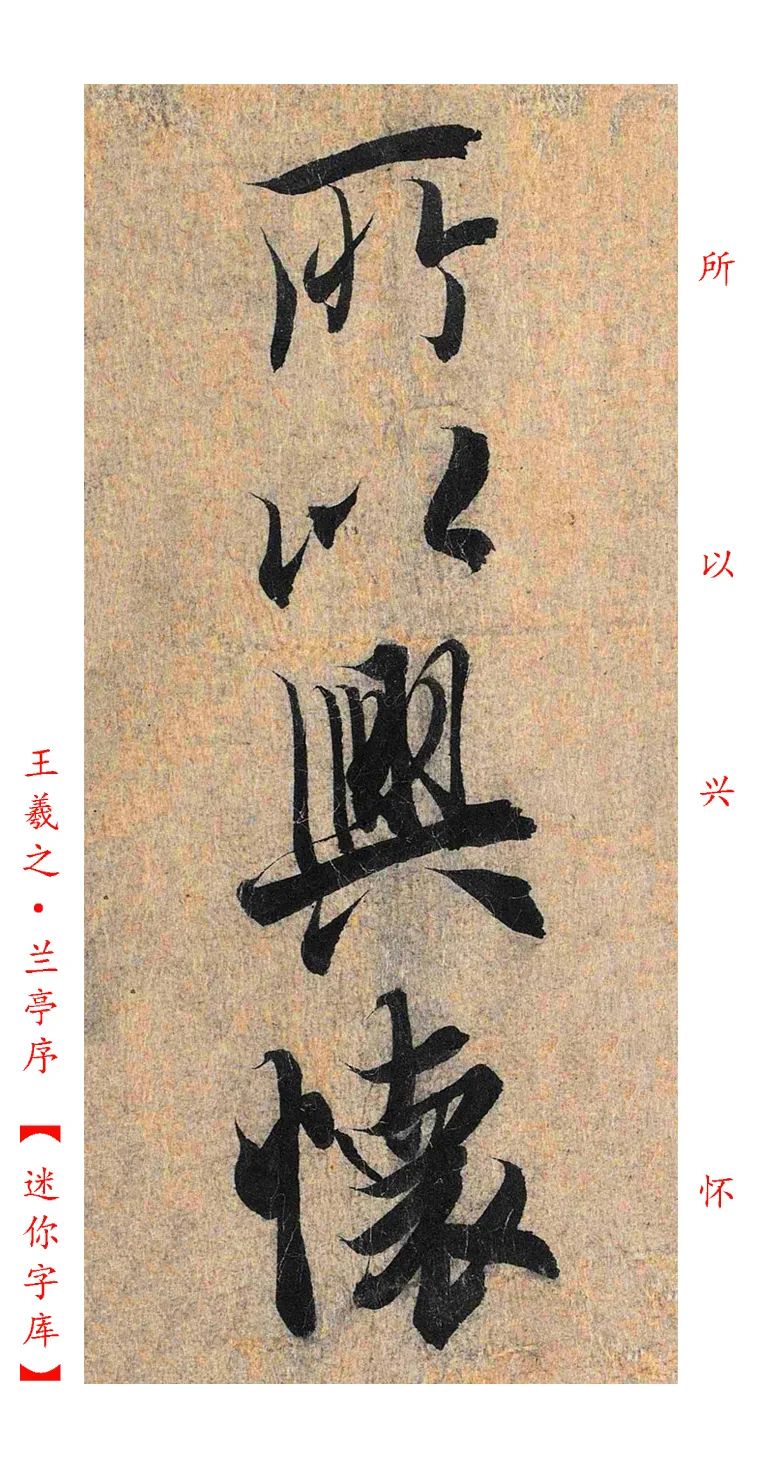 所以興懷
所
以
兴
怀
王羲之·兰亭序【迷你字库】